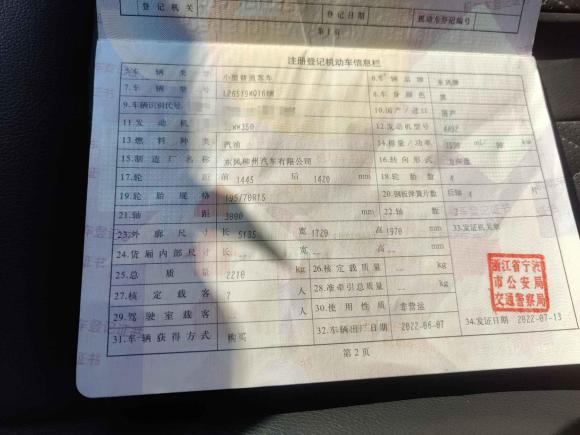 登记机关 登记日期 机动车登记编号
第1页
注册登记机动车信息栏
5.车辆类型 小型普通客车 6.车辆品牌 东风牌
7.车辆型号 8.车身颜色 黑
9.车辆识别代号 10.国产/进口 国产
11.发动机 12.发动机型号 4A92
13.燃料种类 汽油 14.排量/功率 ml/ kw
15.制造厂名称 东风柳州汽车有限公司 16.转向形式 方向盘
17.轮距 前 1445 后 1420 mm 18.轮胎数 4
19.轮胎规格 195/70R15 20.钢板弹簧片数 后轴 片
21.轴距 3000 mm 22.轴数 2
23.外廓尺寸 长 5135 宽 1720 高 1970 mm 33.发证机关章
24.货厢内部尺寸 长 -- 宽 -- 高 -- mm
25.总质量 2210 kg 26.核定载质量 -- kg
27.核定载客 7 人 28.准牵引总质量 -- kg
29.驾驶室载客 -- 人 30.使用性质 非营运
31.车辆获得方式 购买 32.车辆出厂日期 2022-06-07 34.发证日期 2022-07-13
浙江省宁波
市公安局
交通警察局
第2页